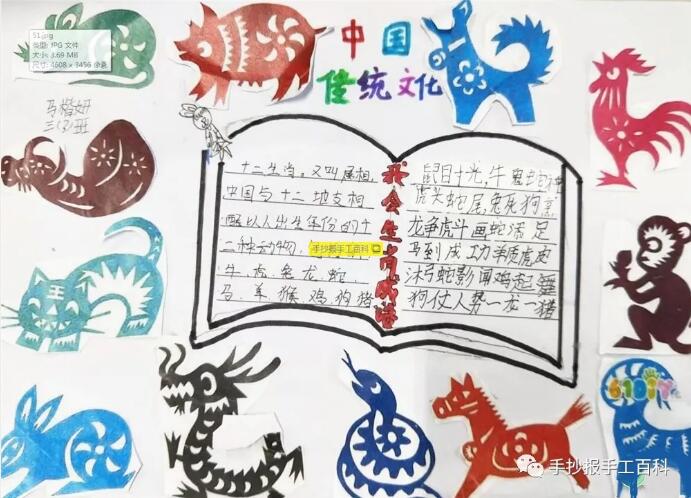 51.jpg
类型: JPG 文件
大小: 3.69 MB
尺寸: 4608 x 3456 像素
中国
传统文化
马楷妍
三(3)班
十二生肖，又叫属相，
中国与十二地支相
配以人出生年份的十
二种动物，
手抄报手工百科
牛、虎、兔、龙、蛇、
马、羊、猴、鸡、狗、猪
我会生肖成语
鼠目寸光，牛鬼蛇神
虎头蛇尾，兔死狗烹
龙争虎斗画蛇添足
马到成功羊质虎皮
沐弓蛇影闻鸡起舞
狗仗人势一龙一猪
手抄报手工百科